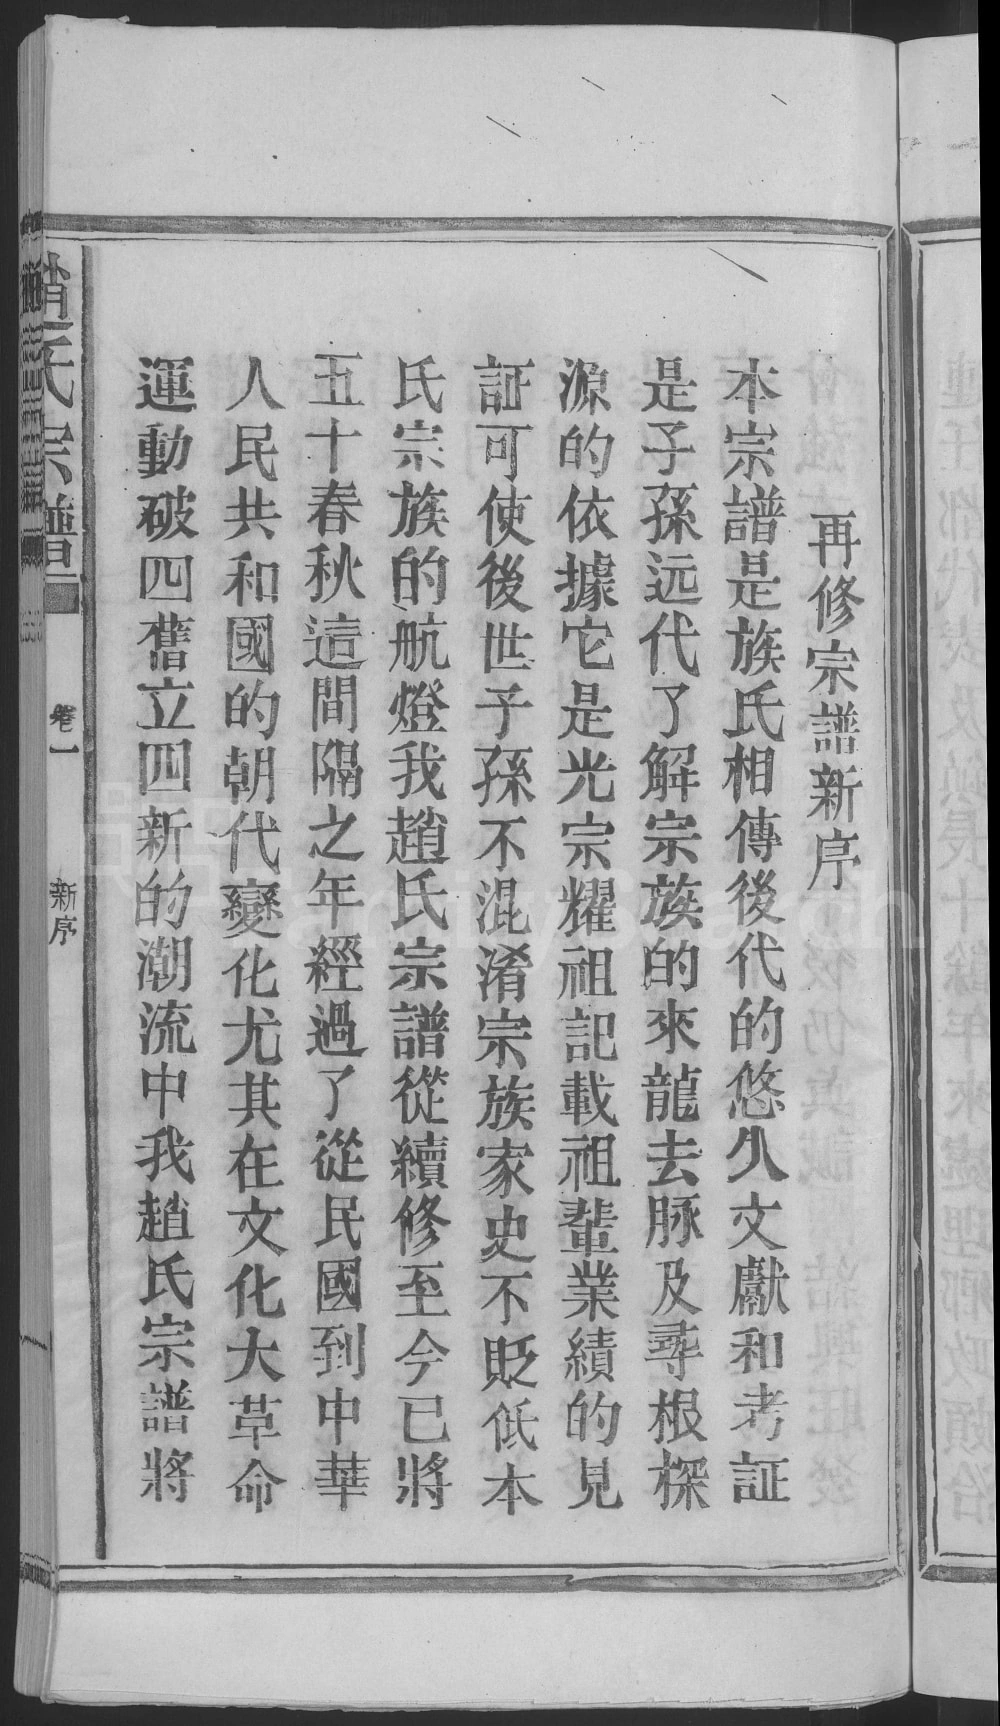 再修宗譜新序
本宗譜是族氏相傳後代的悠久文獻和考証
是子孫远代了解宗族的來龍去脉及尋根探
源的依據它是光宗耀祖記載祖輩業績的見
証可使後世子孫不混淆宗族家史不貶低本
氏宗族的航燈我趙氏宗譜從續修至今已將
五十春秋這間隔之年經過了從民國到中華
人民共和國的朝代變化尤其在文化大革命
運動破四舊立四新的潮流中我趙氏宗譜將
趙氏宗譜
卷一
新序